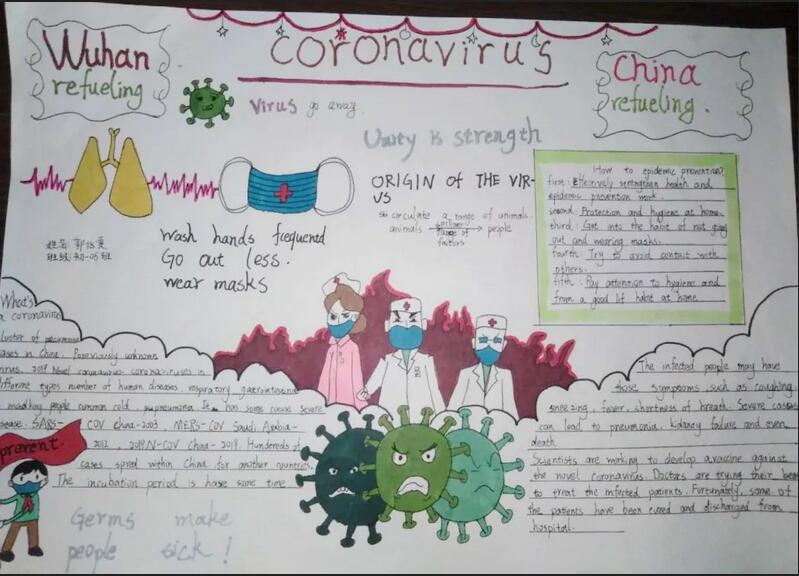 Wuhan
refueling
coronavirus
China
refueling.
Virus go away.
Unity is strength
wash hands frequented
Go out less.
wear masks
姓名
班级:初一05班
ORIGIN OF THE VIR-
US
circulate a range of animals.
animals people
factors
How to epidemic prevention?
first: Effectively strengthen health and
epidemic prevention work.
second: Protection and hygiene at home.
third: Get into the habit of not going
out and wearing masks.
fourth: Try to avoid contact with
others.
fifth: Pay attention to hygiene and
from a good lif habit at home
What's
a coronavirus
cluster of pneumonia
cases in China. Popreviously unknown
virus. 2019 Novel coronavirus coronaviruses is
different types number of human diseases respiratory gastrointestinal
people common cold, It has some cause severe
sease. SARS- COV china-2003, MERS-COV Saudi Arabia-
2012, 2019.N-COV China-2019. Hundereds of
cases spred within China for another countries.
The incubation period is have some time
prevent.
Germs make
people sick!
The infected people may have
those symptoms such as coughing
sneezing, fever, shortness of breath. Severe cases
can lead to pneumonia, kidaney failure and even
death.
Scientists are working to develop a vaccine against
the novel coronavirus. Doctors are trying their best
to treat the infected patients. Fortunately, some of
the patients have been cured and discharged from
hospital.